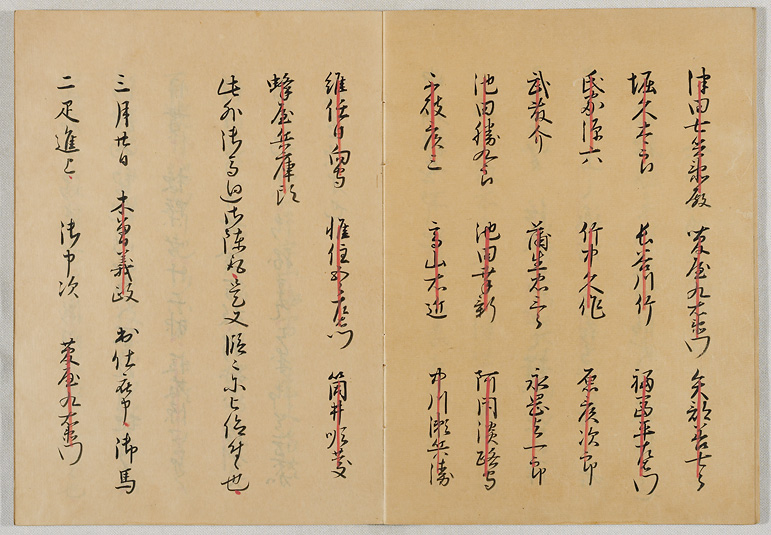 津田七兵衛殿 菅屋九右衛門 矢部善七郎
堀久太郎 長谷川竹 福富平左衛門
氏家源六 竹中久作 原彦次郎
武藤介 蒲生忠三郎 永岡与一郎
池田勝九郎 池田幸新 阿閉淡路守
不破彦三 高山右近 中川瀬兵衛
維任日向守 惟住五郎左衛門 筒井順慶
蜂屋兵庫頭
此外御馬廻御陣 是又段々 也
三月廿日 木曽義政 出仕在之 御馬
二疋進上 御申次 菅屋九右衛門